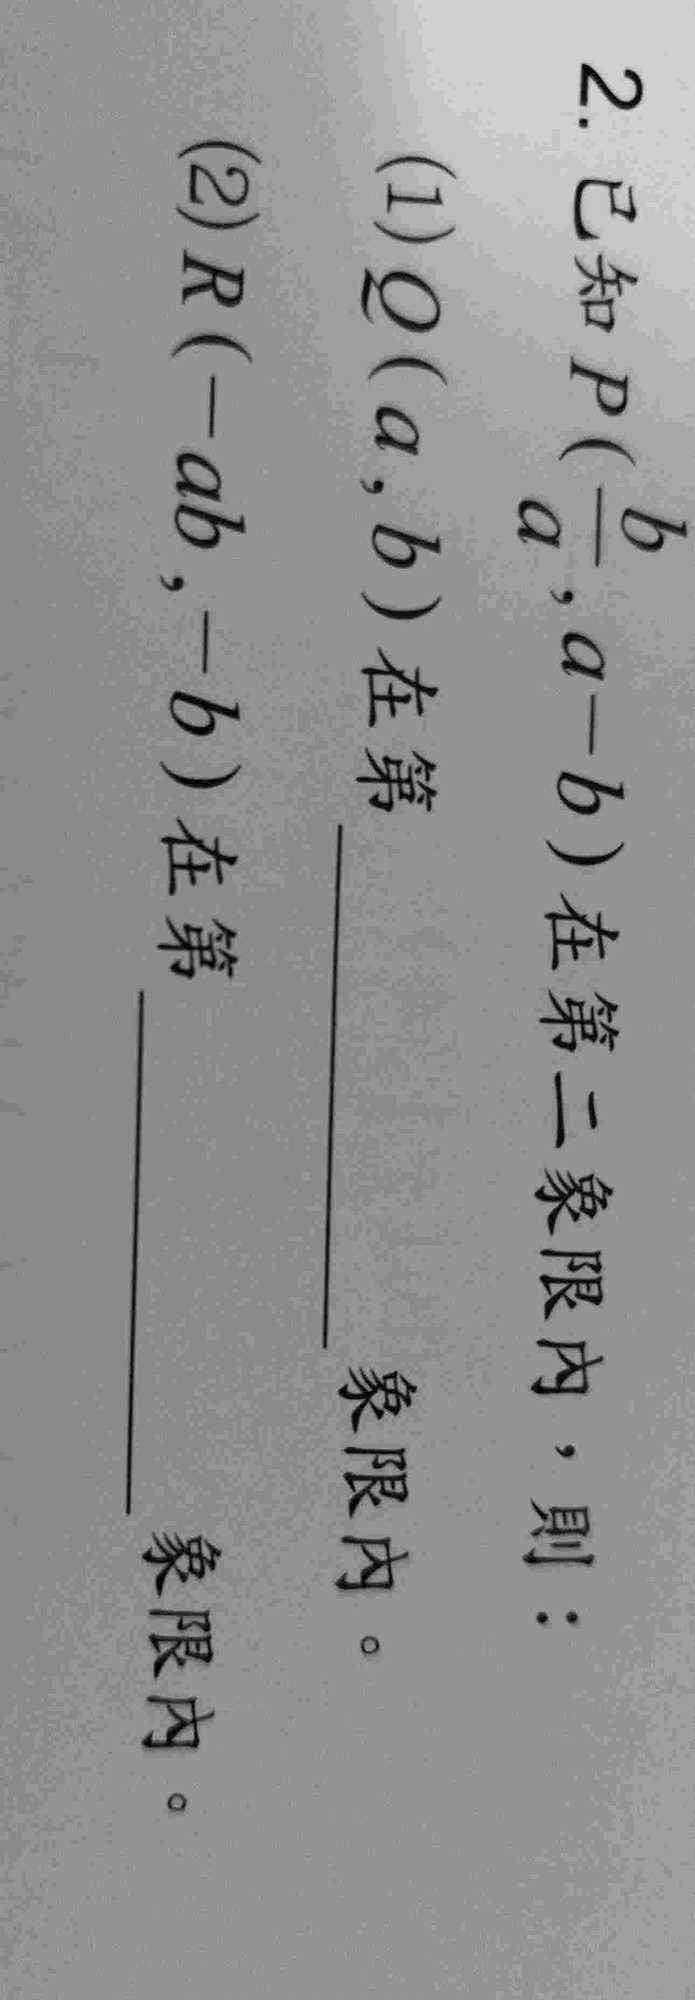 2. 已知 P(b/a, a-b)在第二象限內，則：
(1) Q(a, b)在第＿＿＿＿＿＿象限內。
(2) R(-ab, -b)在第＿＿＿＿＿＿象限內。